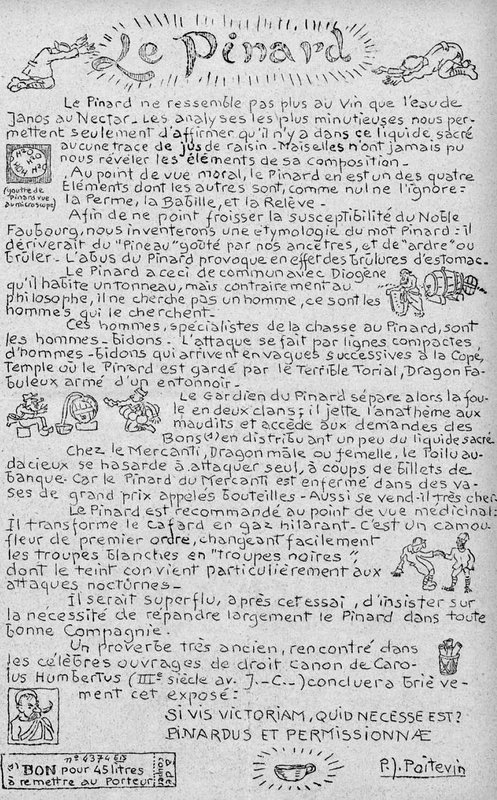 Le Pinard
Le Pinard ne ressemble pas plus au Vin que l'eau de
Janos au Nectar._ Les analyses les plus minutieuses nous per-
mettent seulement d'affirmer qu'il n'y a dans ce liquide sacré
aucune trace de jus de raisin_ Mais elles n'ont jamais pu
nous révéler les éléments de sa composition_
Au point de vue moral, le Pinard en est un des quatre
Eléments dont les autres sont, comme nul ne l'ignore:
la Perme, la Babille, et la Relève_
(goutte de
Pinard vue
au microscope)
Afin de ne point froisser la susceptibilité du Noble
Faubourg, nous inventerons une étymologie du mot Pinard: il
dériverait du "Pineau" goûté par nos ancêtres, et de "ardre" ou
brûler_ L'abus du Pinard provoque en effet des brûlures d'estomac_
Le Pinard a ceci de commun avec Diogène
qu'il habite un tonneau, mais contrairement au
philosophe, il ne cherche pas un homme, ce sont les
hommes qui le cherchent_
Ces hommes, spécialistes de la chasse au Pinard, sont
les hommes-bidons_ L'attaque se fait par lignes compactes
d'hommes-bidons qui arrivent en vagues successives à la Copé,
Temple où le Pinard est gardé par le Terrible Torial, Dragon Fa-
buleux armé d'un entonnoir_
Le Gardien du Pinard sépare alors la fou-
le en deux clans; il jette l'anathème aux
maudits et accède aux demandes des
Bons(1) en distribuant un peu du liquide sacré.
Chez le Mercanti, Dragon mâle ou femelle, le Poilu au-
dacieux se hasarde à attaquer seul, à coups de billets de
banque_ Car le Pinard du Mercanti est enfermé dans des va-
ses de grand prix appelés bouteilles_ Aussi se vend-il très cher_
Le Pinard est recommandé au point de vue médicinal:
Il transforme le Cafard en gaz hilarant_ C'est un camou-
fleur de premier ordre, changeant facilement
les troupes blanches en "troupes noires",
dont le teint convient particulièrement aux
attaques nocturnes_
Il serait superflu, après cet essai, d'insister sur
la nécessité de répandre largement le Pinard dans toute
bonne Compagnie.
Un proverbe très ancien, rencontré dans
les célèbres ouvrages de droit canon de Caro-
lus Humbertus (IIIe siècle av. J._C._) concluera briève-
ment cet exposé:
SI VIS VICTORIAM, QUID NECESSE EST?
PINARDUS ET PERMISSIONNÆ
n° 4374
(1) BON pour 45 litres
à remettre au Porteur
P.J. Poitevin